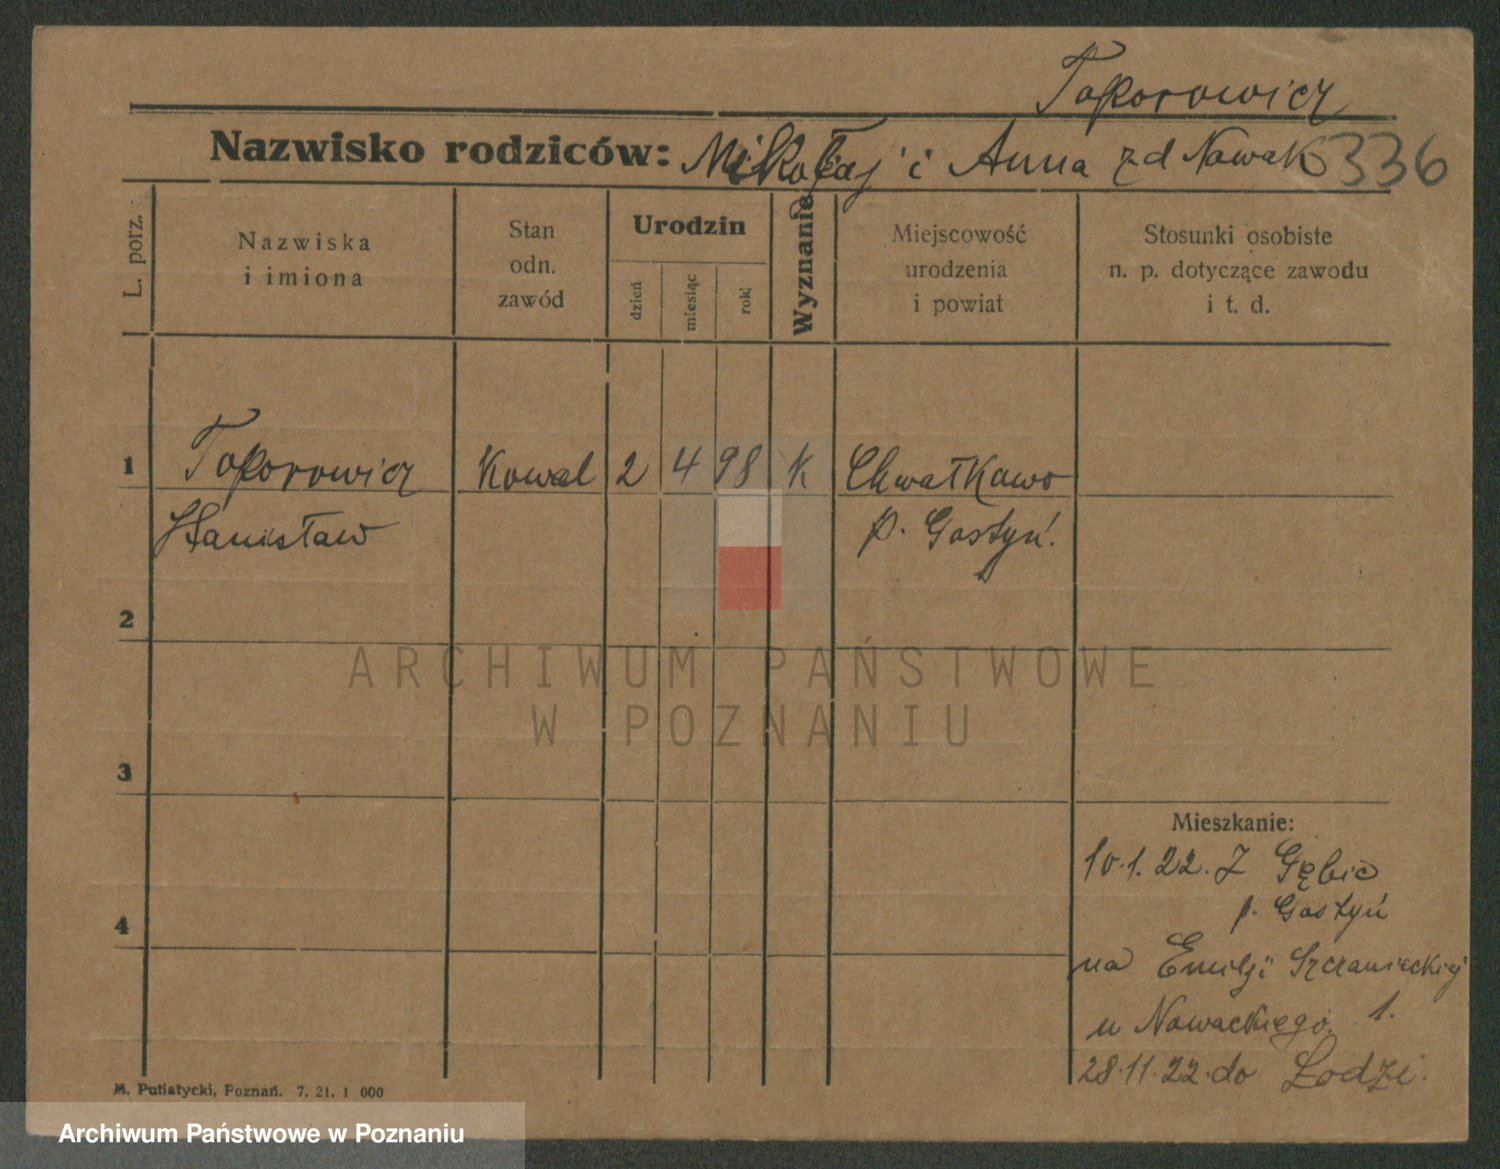 Toporowicz
Nazwisko rodziców: Mikołaj i Anna zd Nowak 336
L. porz.
Nazwiska
i imiona
Stan
odn.
zawód
Urodzin
dzień
miesiąc
rok
Wyznanie
Miejscowość
urodzenia
i powiat
Stosunki osobiste
n. p. dotyczące zawodu
i t. d.
1 Toporowicz Kowal 2 4 98 K Chwałkowo
Stanisław p. Gostyń.
2
ARCHIWUM PAŃSTWOWE
W POZNANIU
3
Mieszkanie:
10.1.22. Z Gębic
4
p. Gostyń
na Emilji Szczanieckiej
u Nowackiego 1.
28.11.22. do Łodzi.
M. Putiatycki, Poznań. 7. 21. 1 000
Archiwum Państwowe w Poznaniu